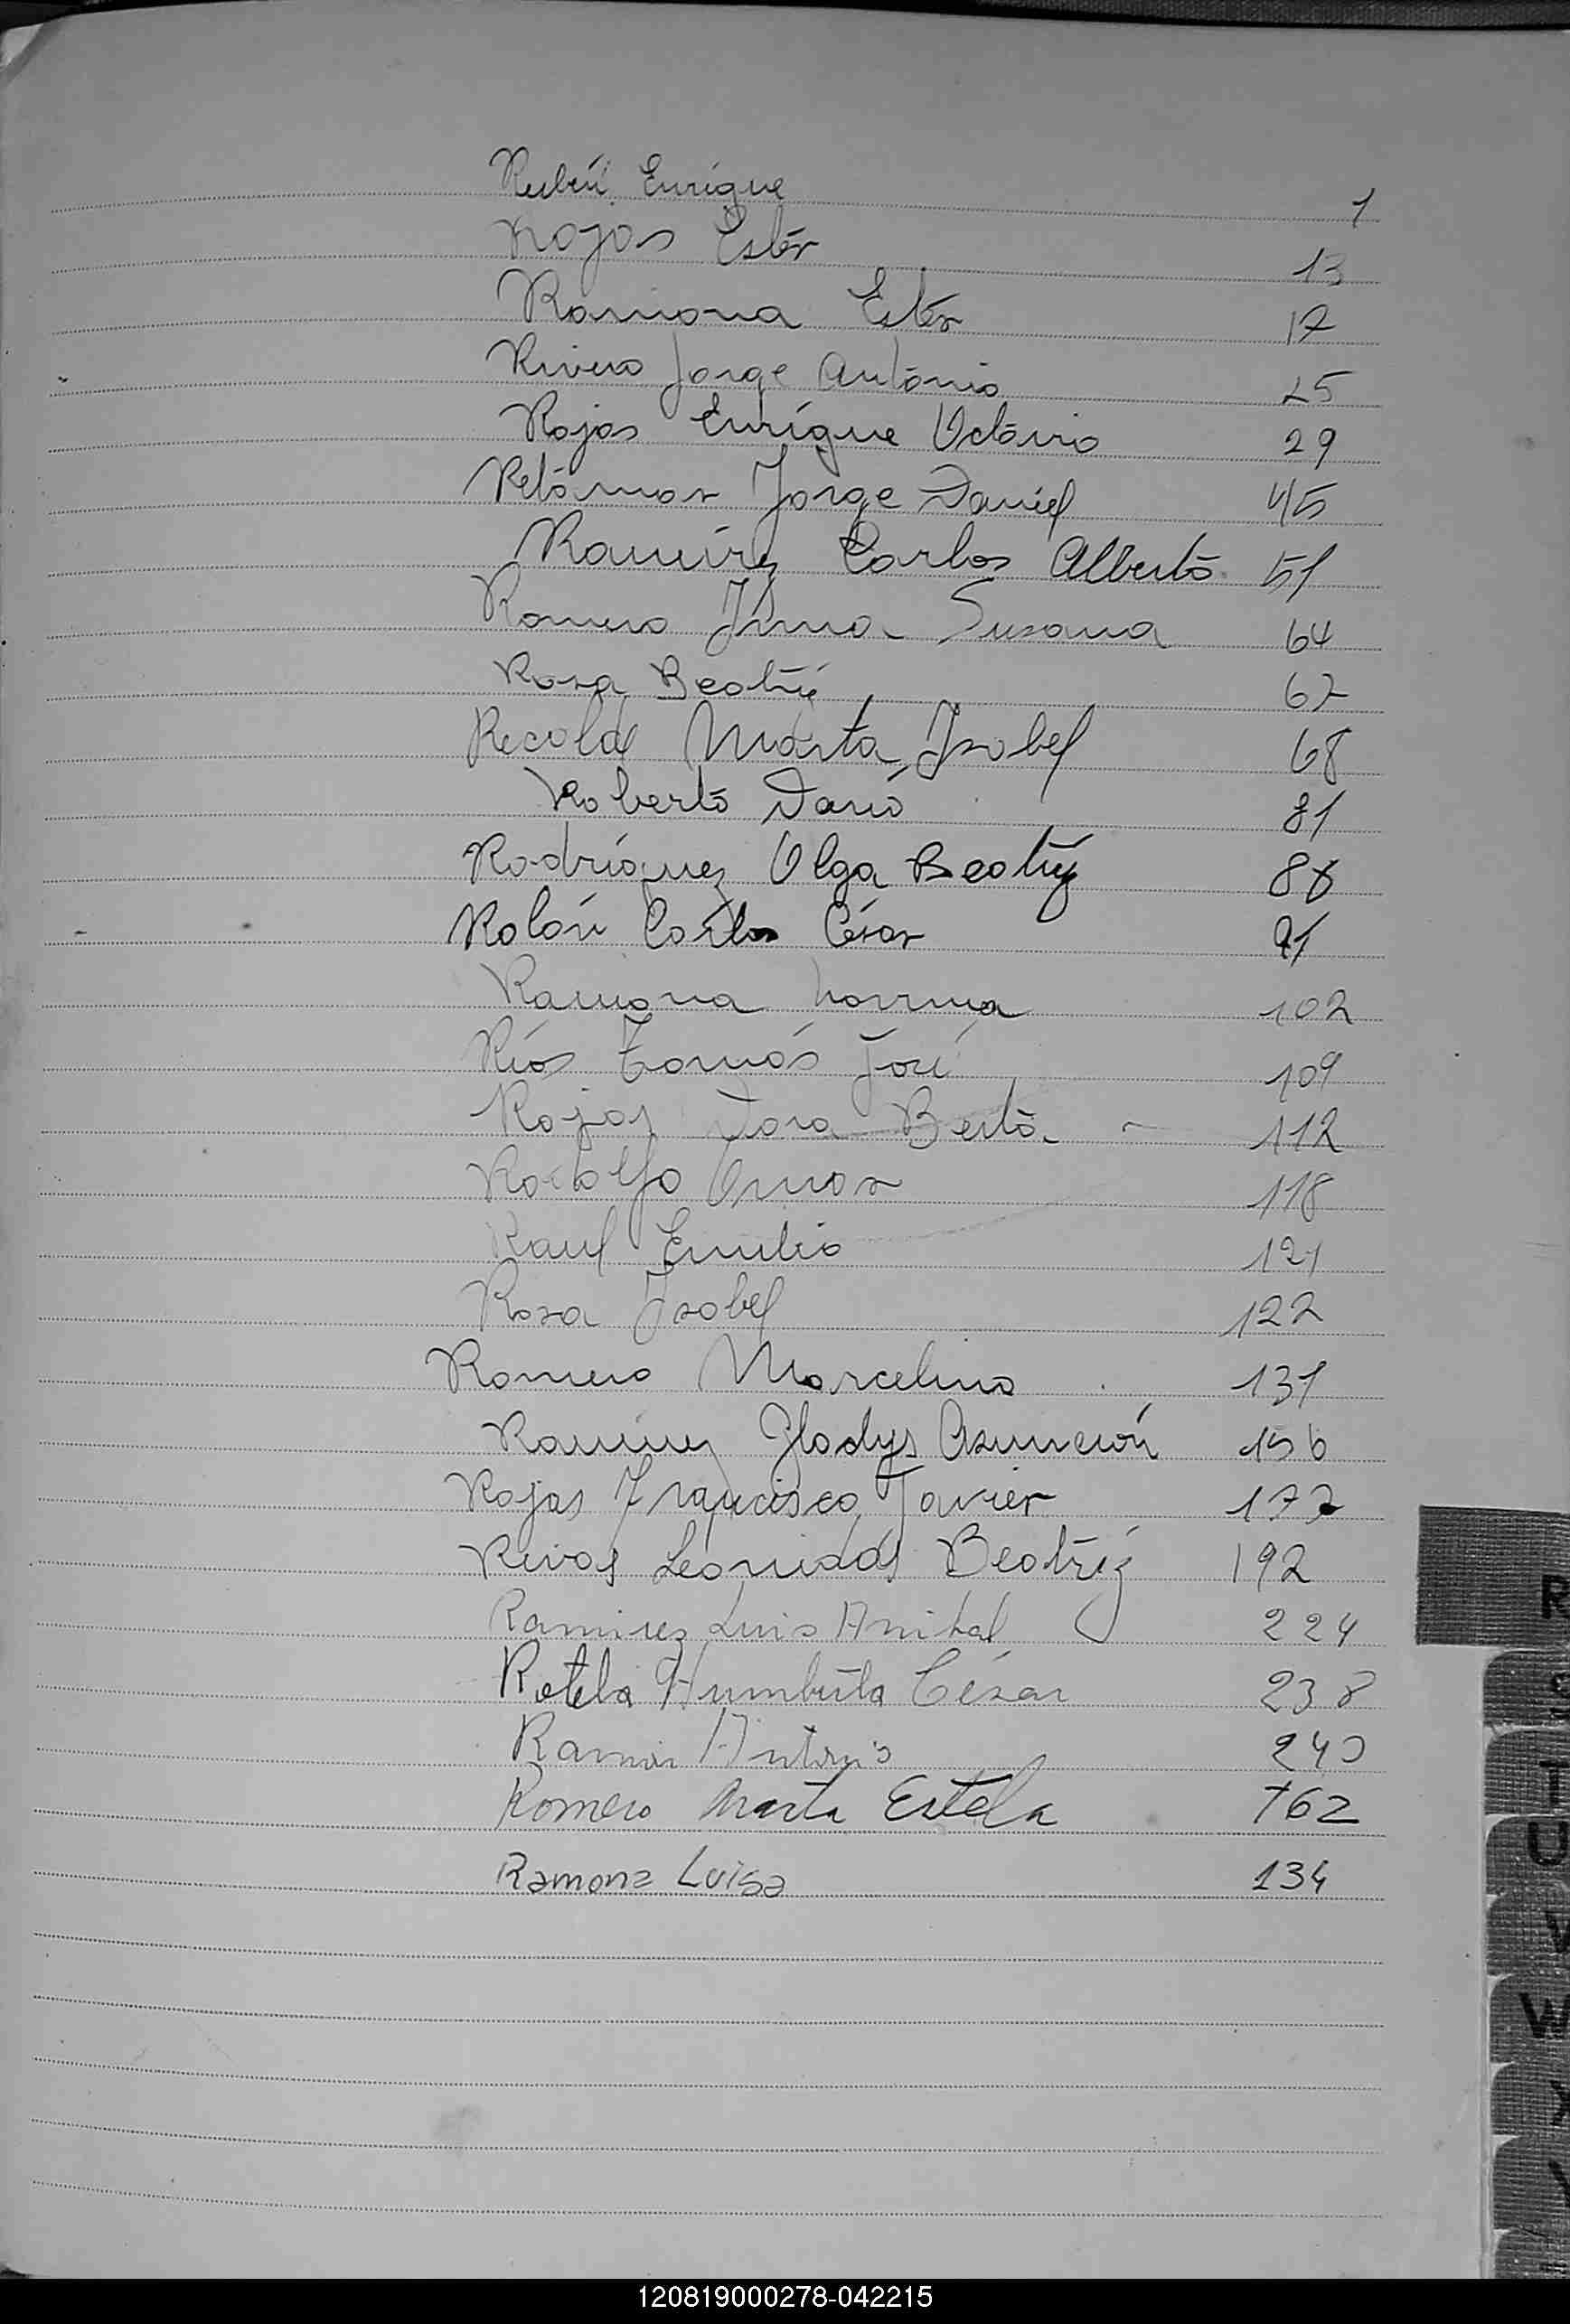 Rubén Enrique 1
Rojas Estér 13
Ramona Estér 17
Rivero Jorge Antonio 25
Rojas Enrique Octavio 29
Retamar Jorge Daniel 45
Ramírez Carlos Alberto 51
Romero Irma Susana 64
Rosa Beatríz 67
Recalde Marta Isabel 68
Roberto Darío 81
Rodríguez Olga Beatríz
Rolón Carlos César 91
Ramona Norma 102
Ríos Tomás José 109
Rojas Dora Berta 112
Rodolfo Omar 118
Raul Emilio 121
Rosa Isabel 122
Romero Marcelino 131
Ramírez Gladys Asunción 156
Rojas Francisco Javier 177
Rivas Leonidas Beatríz 192
Ramirez Luis Anibal 224
Rotela Humberto César 238
Ramón Antonio 240
Romero Marta Estela 162
Ramona Luisa 134
R
S
T
U
V
W
X
120819000278-042215